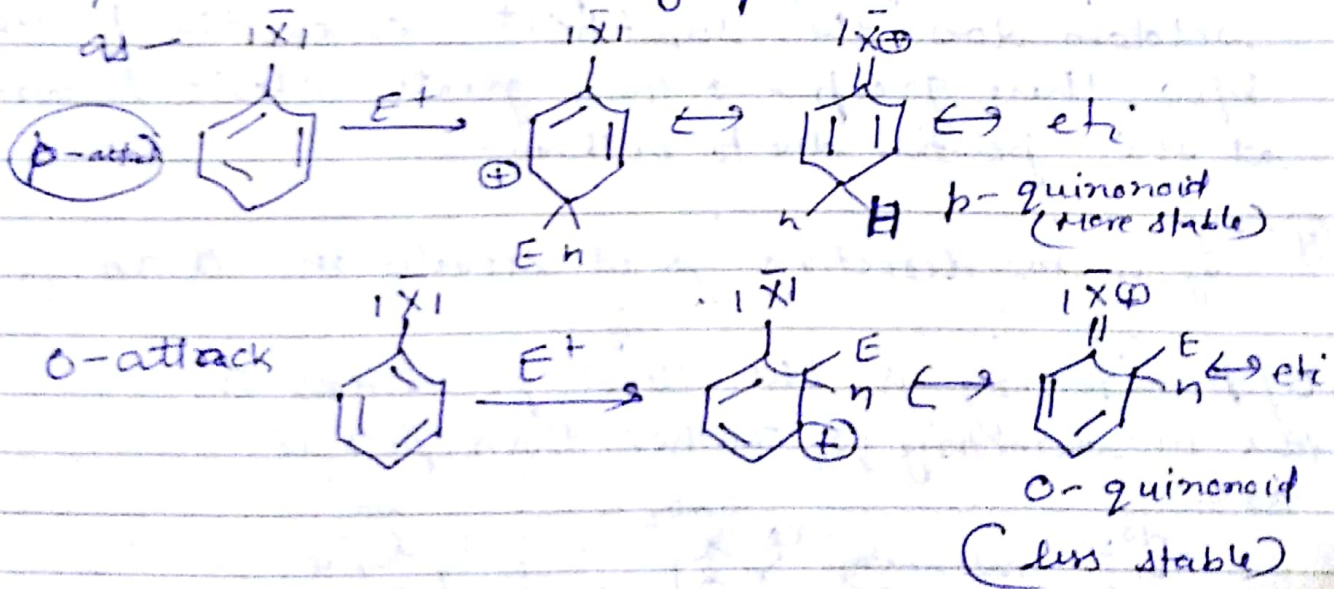 as —
|X̄| |X̄| |X̄⊕
p-attack E+ ↔ ↔ etc
⊕
E H H p- quinonoid
(More stable)
|X̄| |X̄| |X̄⊕
o-attack E+ E H ↔ E H ↔ etc
⊕
o- quinonoid
(less stable)